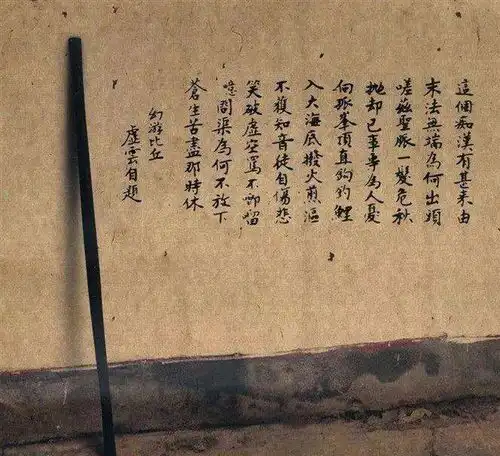 這個痴漢有甚來由
末法無端為何出頭
嗟茲聖脈一髮危秋
拋却己事專為人憂
向孤峯頂直鈎釣鯉
入大海底撥火煎漚
不獲知音徒自傷悲
笑破虛空罵不唧留
噫問渠為何不放下
蒼生苦盡那時休
幻游比丘
虛雲自題